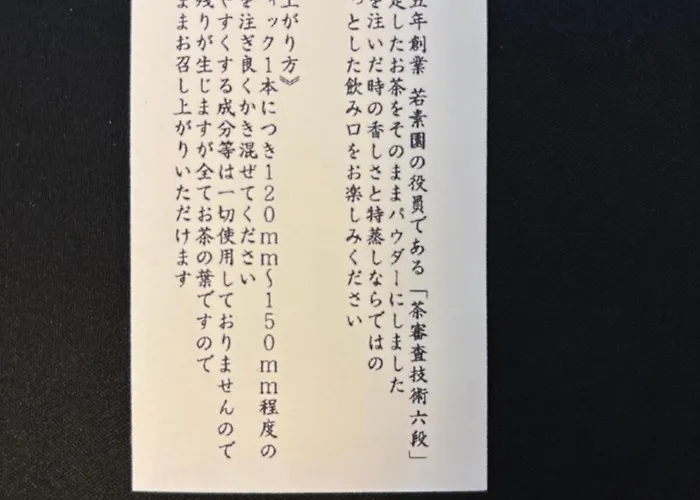 五年創業 若素園の役員である「茶審査技術六段」
定したお茶をそのままパウダーにしました
を注いだ時の香しさと特蒸しならではの
っとした飲み口をお楽しみください
上がり方》
ィック1本につき120mm〜150mm程度の
を注ぎ良くかき混ぜてください
やすくする成分等は一切使用しておりませんので
残りが生じますが全てお茶の葉ですので
ままお召し上がりいただけます